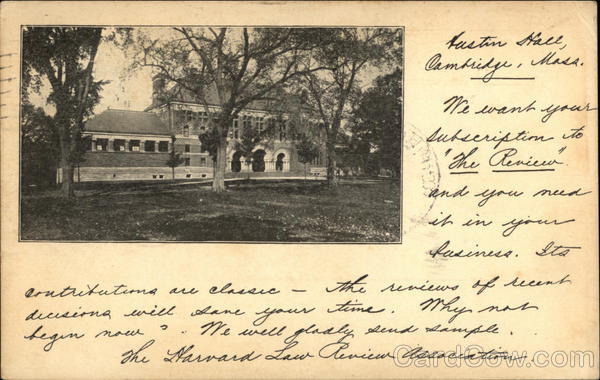 Austin Hall,
Cambridge, Mass.
We want your
subscription to
"The Review"
and you need
it in your
business. Its
contributions are classic - the reviews of recent
decisions will save your time. Why not
begin now? We will gladly send sample.
The Harvard Law Review Association.
CardCow.com